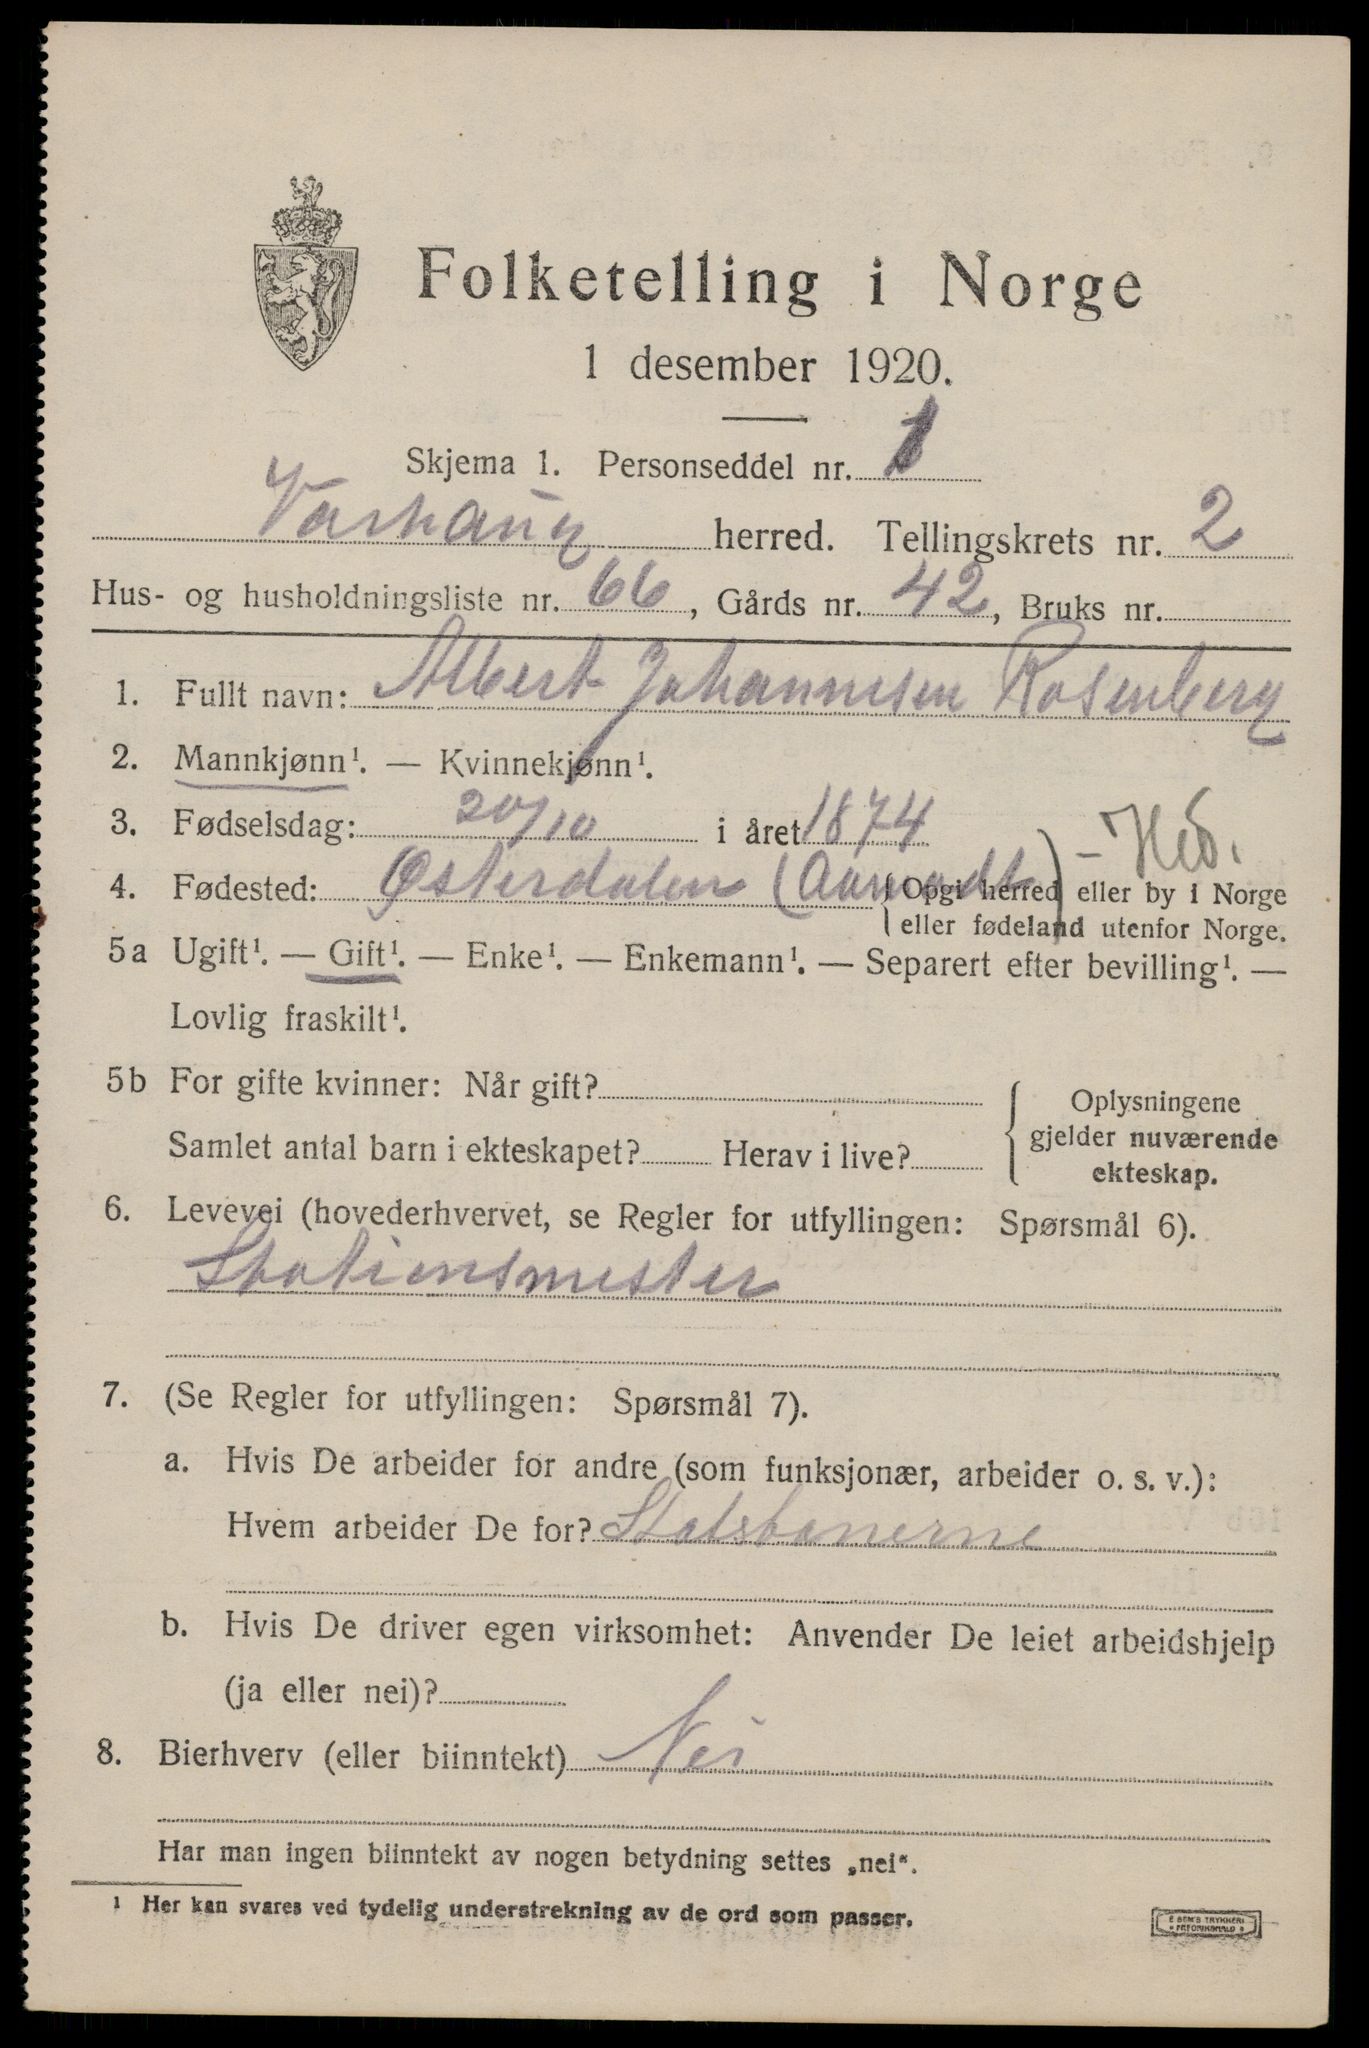 Folketelling i Norge
1 desember 1920.
Skjema 1. Personseddel nr. 1
Varhaug herred. Tellingskrets nr. 2
Hus- og husholdningsliste nr. 66, Gårds nr. 42, Bruks nr.
1. Fullt navn: Albert Johannesen Rosenberg
2. Mannkjønn¹. — Kvinnekjønn¹.
3. Fødselsdag: 20/10 i året 1874
4. Fødested: Østerdalen (Aamodt) - Hed.
(Opgi herred eller by i Norge
eller fødeland utenfor Norge.
5a Ugift¹. — Gift¹. — Enke¹. — Enkemann¹. — Separert efter bevilling¹. —
Lovlig fraskilt¹.
5b For gifte kvinner: Når gift?
Samlet antal barn i ekteskapet? Herav i live?
Oplysningene
gjelder nuværende
ekteskap.
6. Levevei (hovederhvervet, se Regler for utfyllingen: Spørsmål 6).
Stationsmester
7. (Se Regler for utfyllingen: Spørsmål 7).
a. Hvis De arbeider for andre (som funksjonær, arbeider o. s. v.):
Hvem arbeider De for? Statsbanerne
b. Hvis De driver egen virksomhet: Anvender De leiet arbeidshjelp
(ja eller nei)?
8. Bierhverv (eller biinntekt) Nei
Har man ingen biinntekt av nogen betydning settes „nei“.
1 Her kan svares ved tydelig understrekning av de ord som passer.
E SEM'S TRYKKERI
FREDRIKSHALD